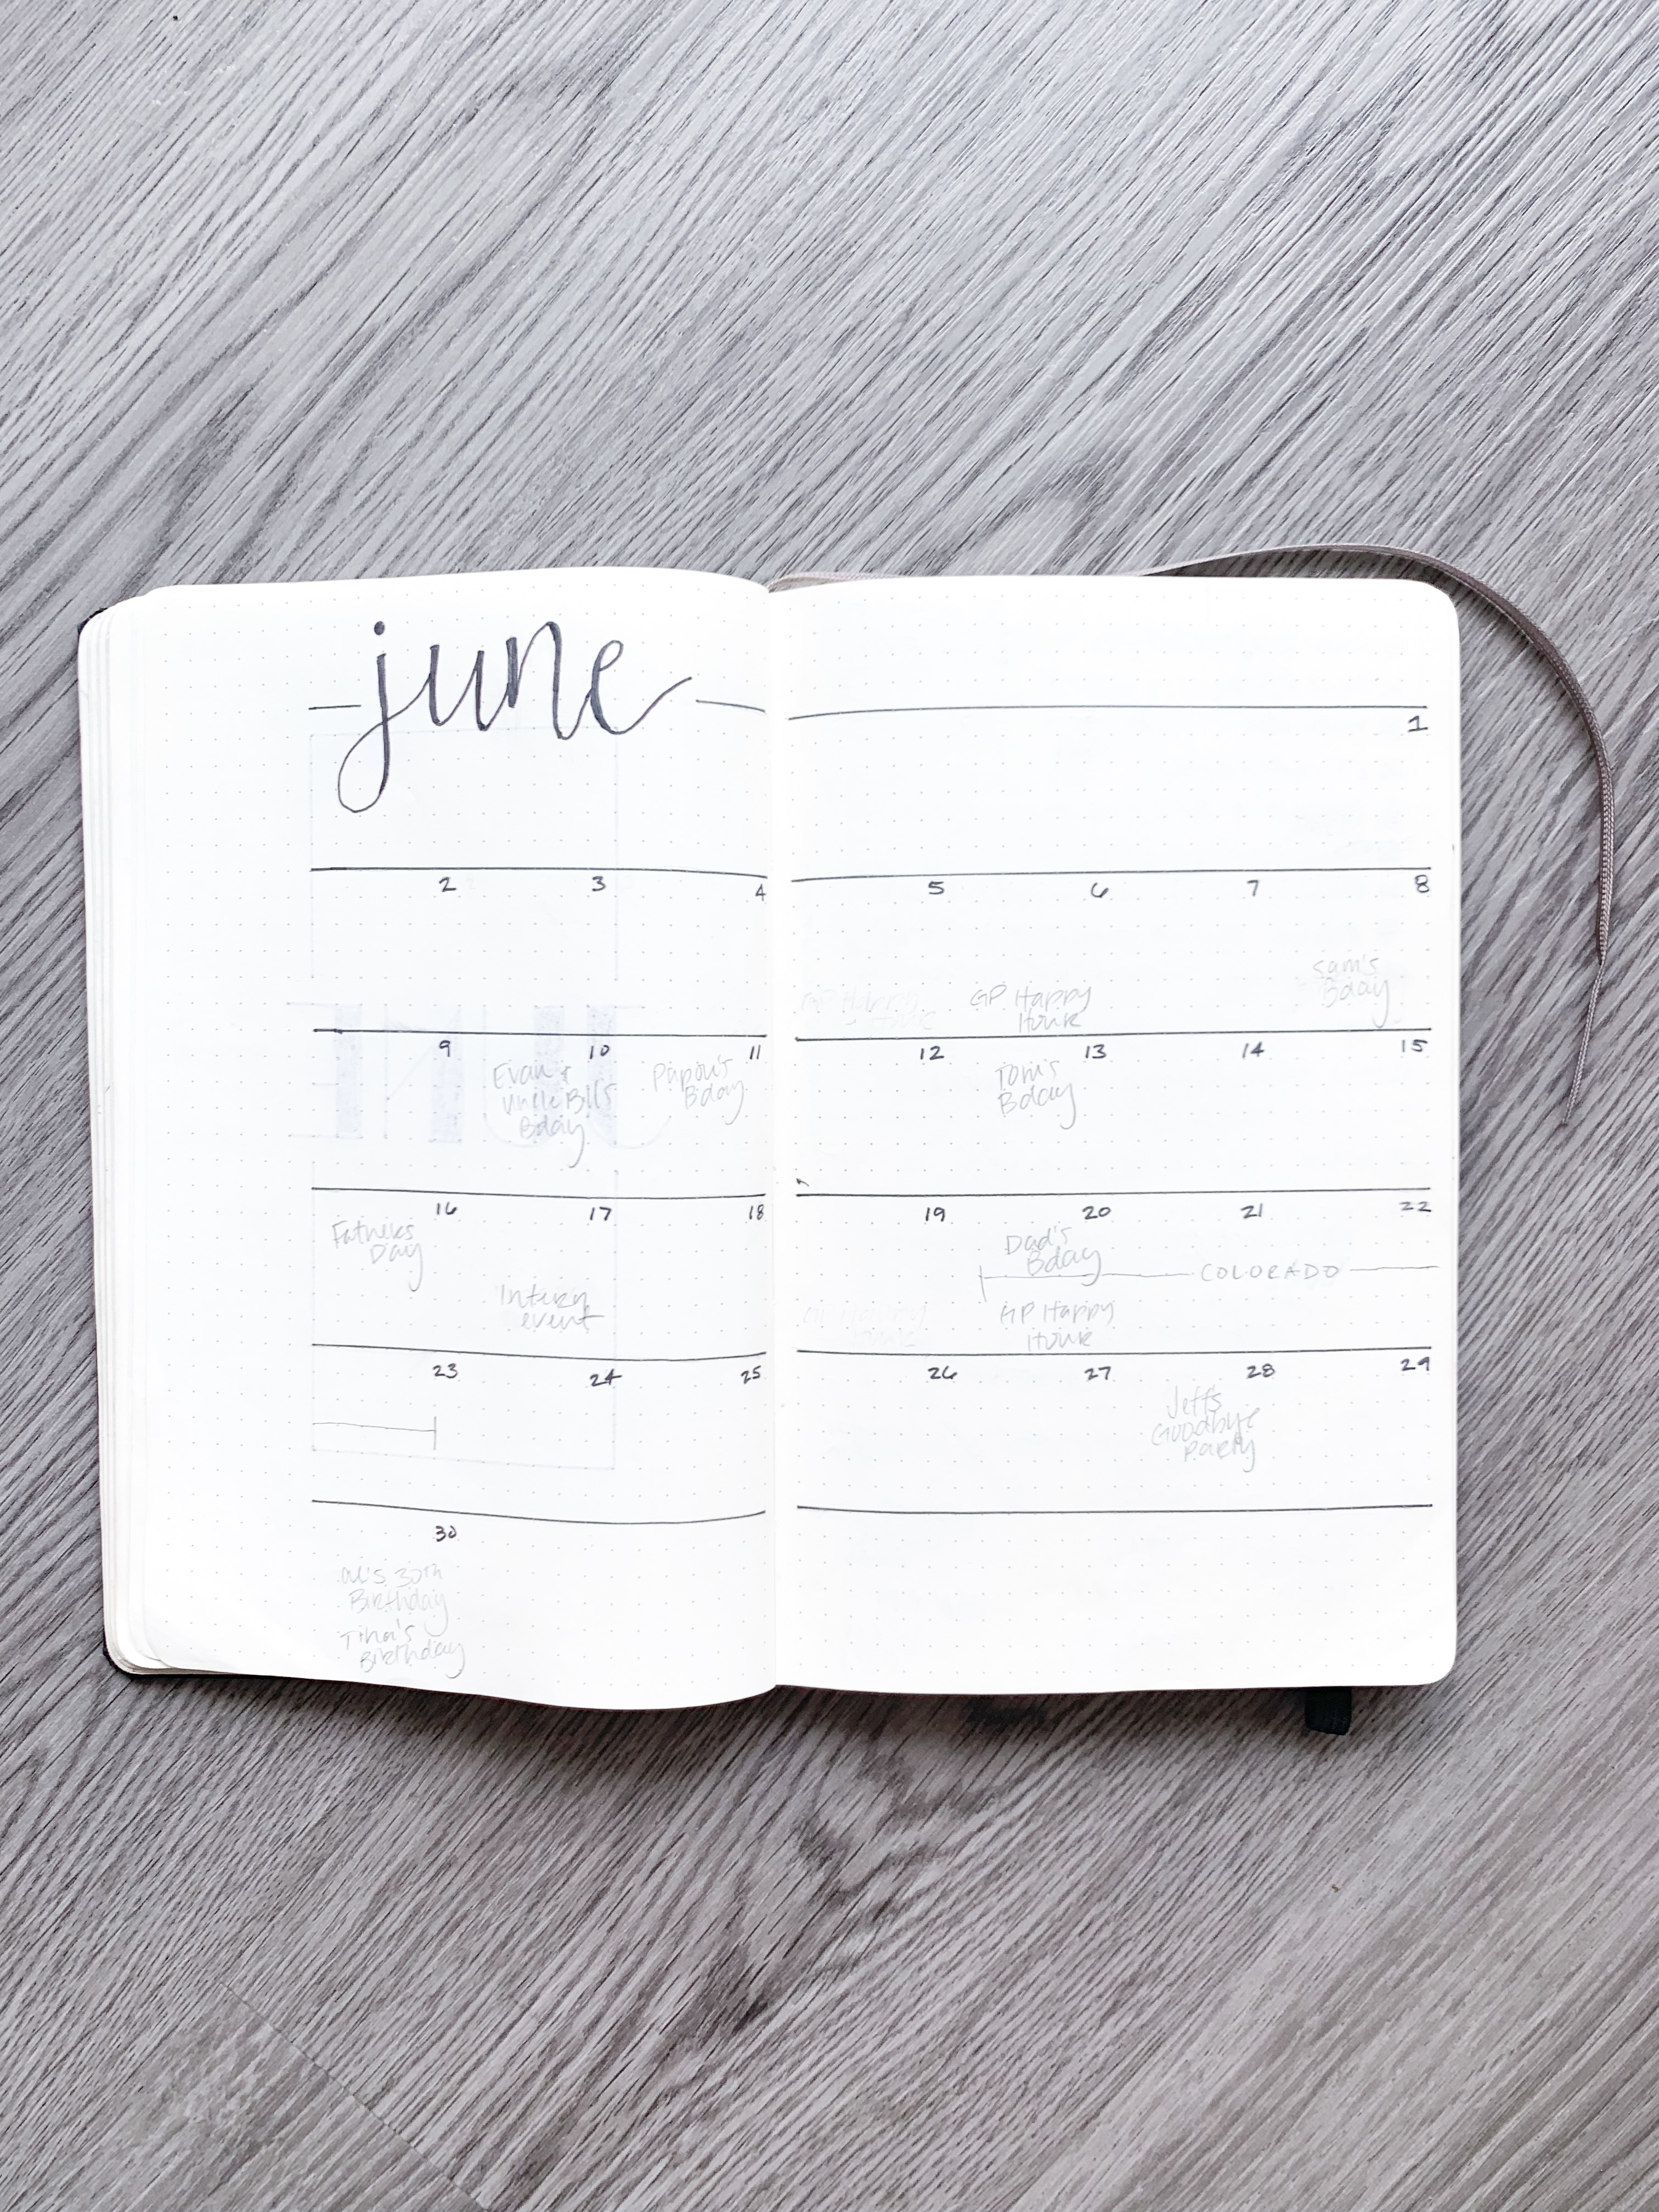 june
1
2 3 4 5 6 7 8
GP Happy GP Happy Sam's
Hour Bday
9 10 11 12 13 14 15
Evan + Papou's Tom's
Uncle Bill's Bday Bday
Bday
16 17 18 19 20 21 22
Father's Dad's
Day Bday
COLORADO
Intern GP Happy GP Happy
event Hour
23 24 25 26 27 28 29
Jeff's
Goodbye
Party
30
30th
Birthday
Tina's
Birthday